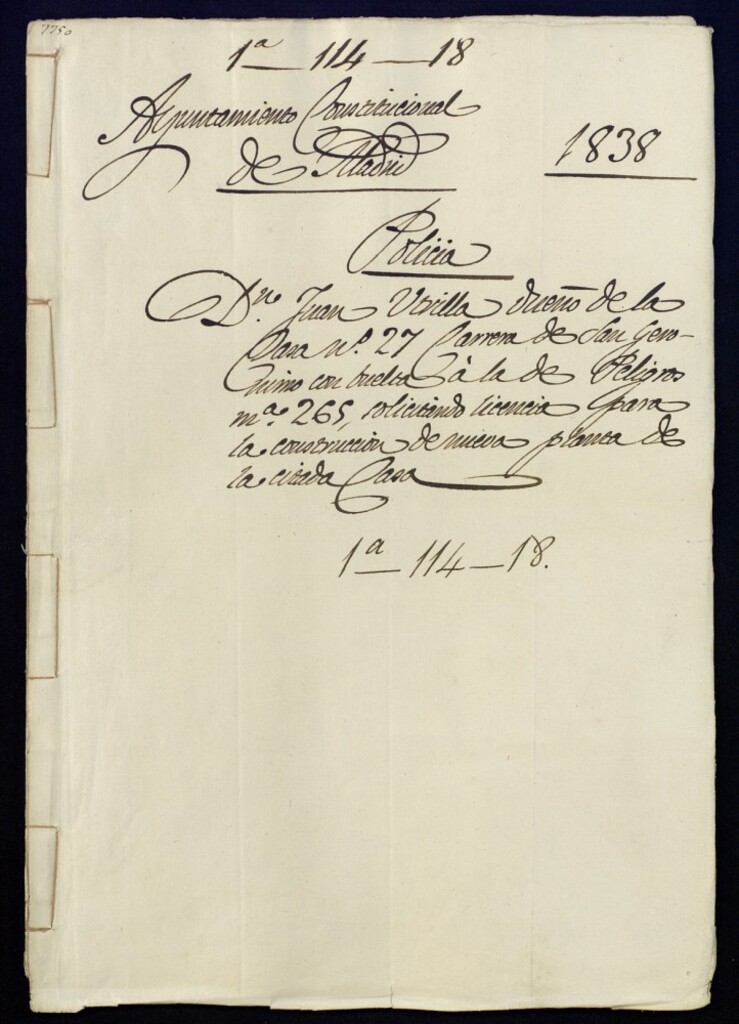 7750
1ª — 114 — 18
Ayuntamiento Constitucional
de Madrid
1838
Policia
Dn. Juan Utrilla dueño de la
Casa nº. 27 Carrera de San Gero-
nimo con buelta à la de Peligros
mª. 265, solicitando licencia para
la construccion de nueva planta de
la citada Casa
1ª — 114 — 18.